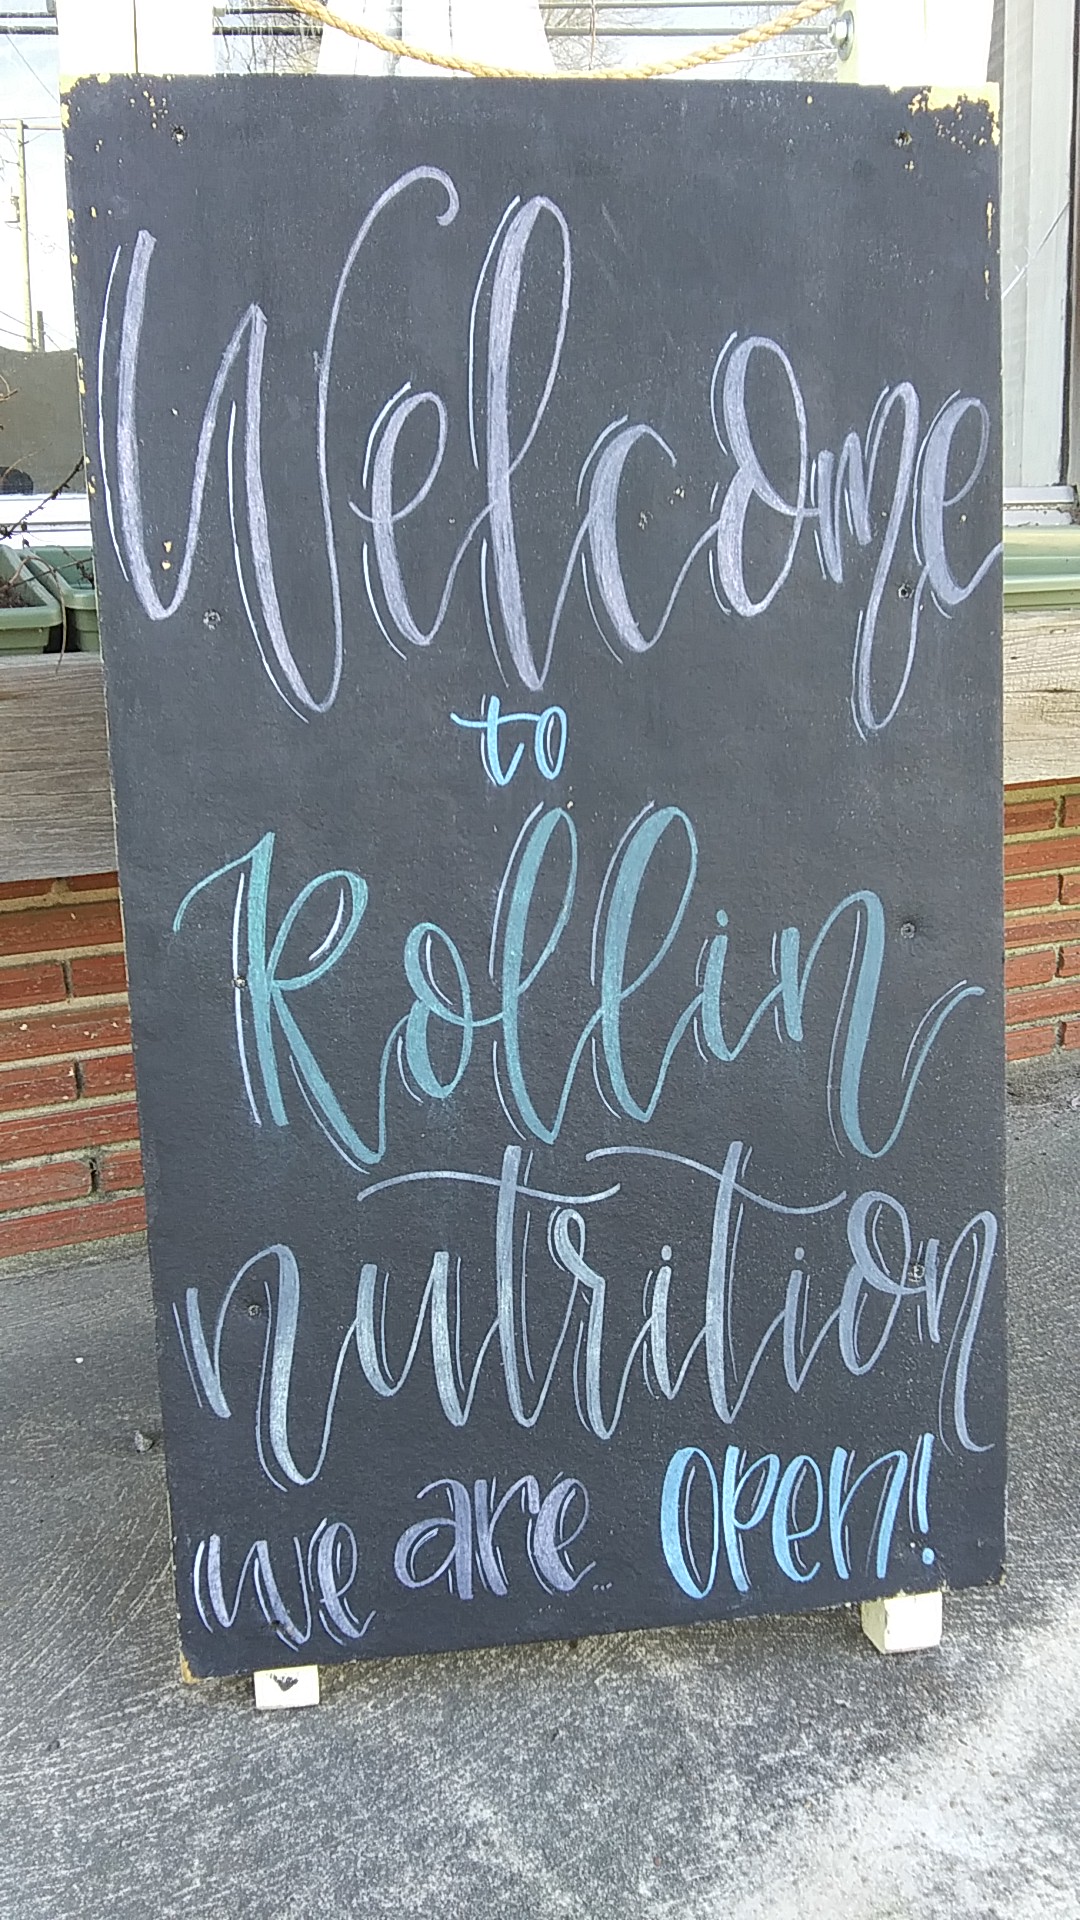 Welcome
to
Rollin
nutrition
we are open!